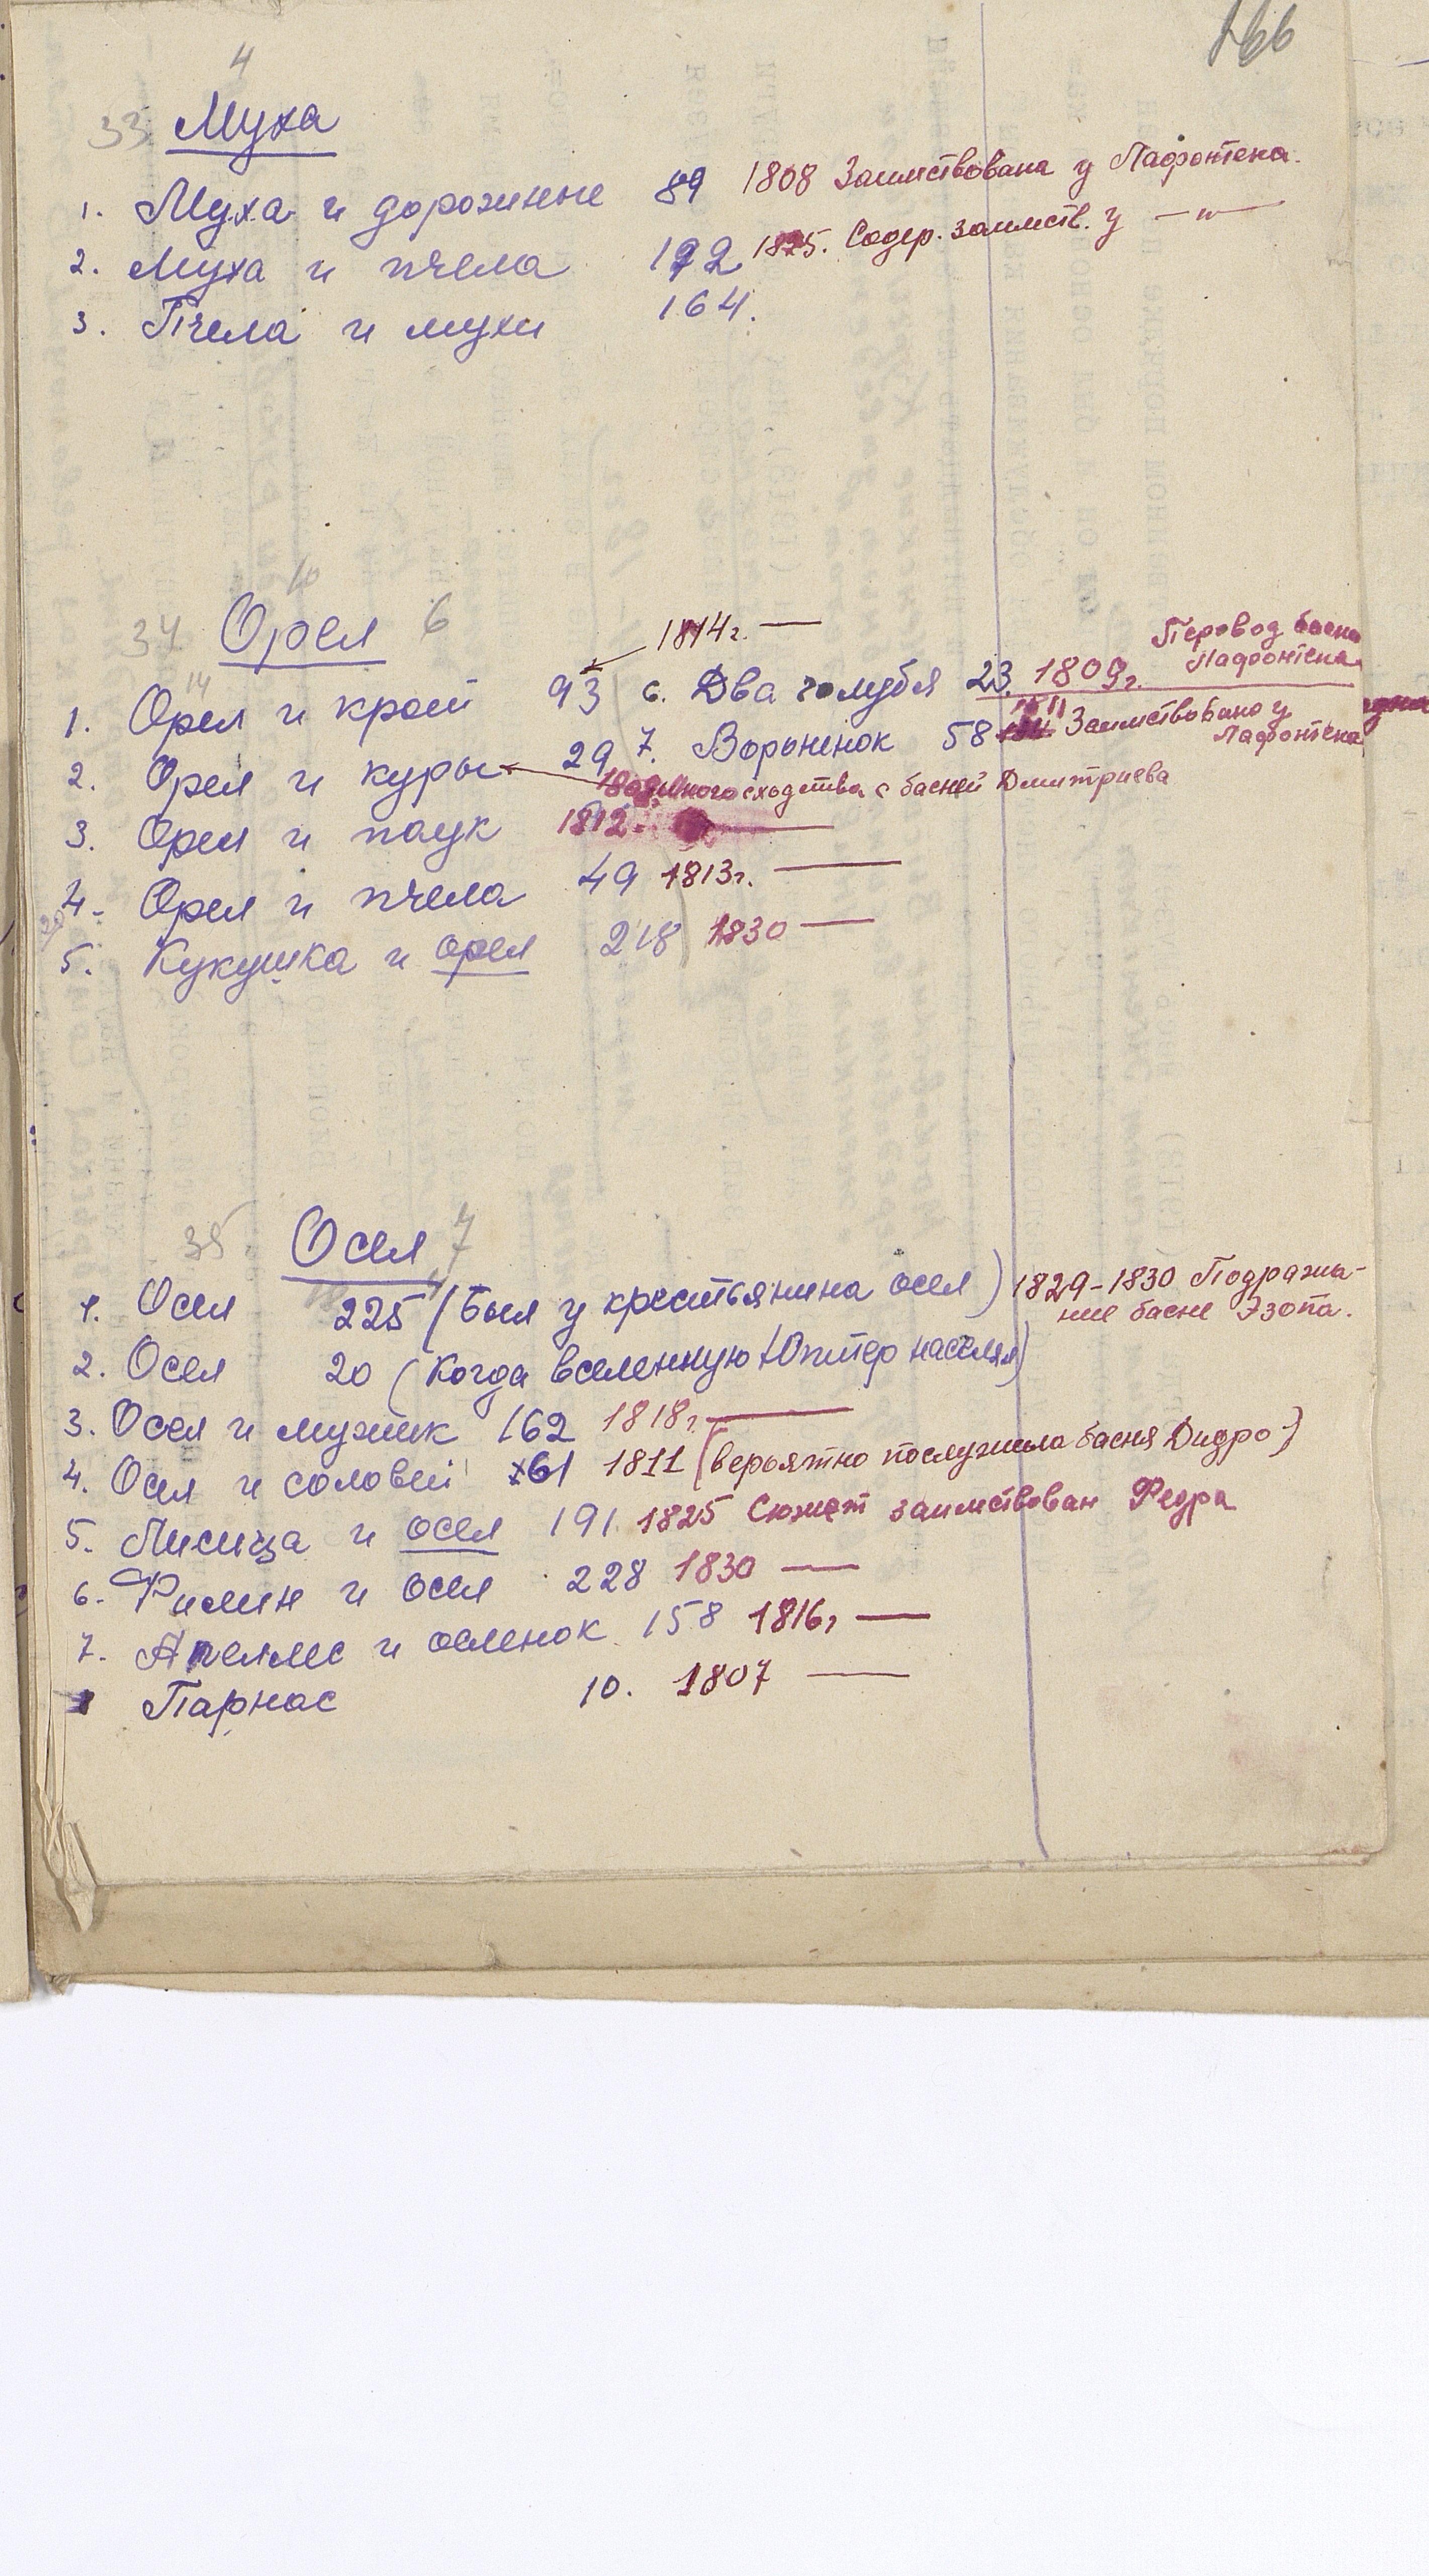 166
4
33 Муха
1. Муха и дорожные 89 1808 Заимствована у Лафонтена.
2. Муха и пчела 192 1825. Содер. заимств. у —"—
3. Пчела и мухи 164.
10
34 Орел 6
1814г. —
14
1. Орел и крот 93 6. Два голубя 23. 1809г. Перевод басни Лафонтена
2. Орел и куры 29 7. Вороненок 58 1811 Заимствовано у Лафонтена
1808 Много сходства с басней Дмитриева
3. Орел и паук 1812. —
4. Орел и пчела 49 1813г. —
5. Кукушка и орел 218 1830 —
35 Осел 7
1. Осел 225 (Был у крестьянина осел) 1829-1830 Подража-
ние басне Эзопа.
2. Осел 20 (Когда вселенную Юпитер населял)
3. Осел и мужик 162 1818г. —
4. Осел и соловей 61 1811 (вероятно послужила басня Дидро)
5. Лисица и осел 191 1825 Сюжет заимствован Федра
6. Филин и осел 228 1830 —
7. Апеллес и осленок 158 1816г —
8 Парнас 10. 1807 —